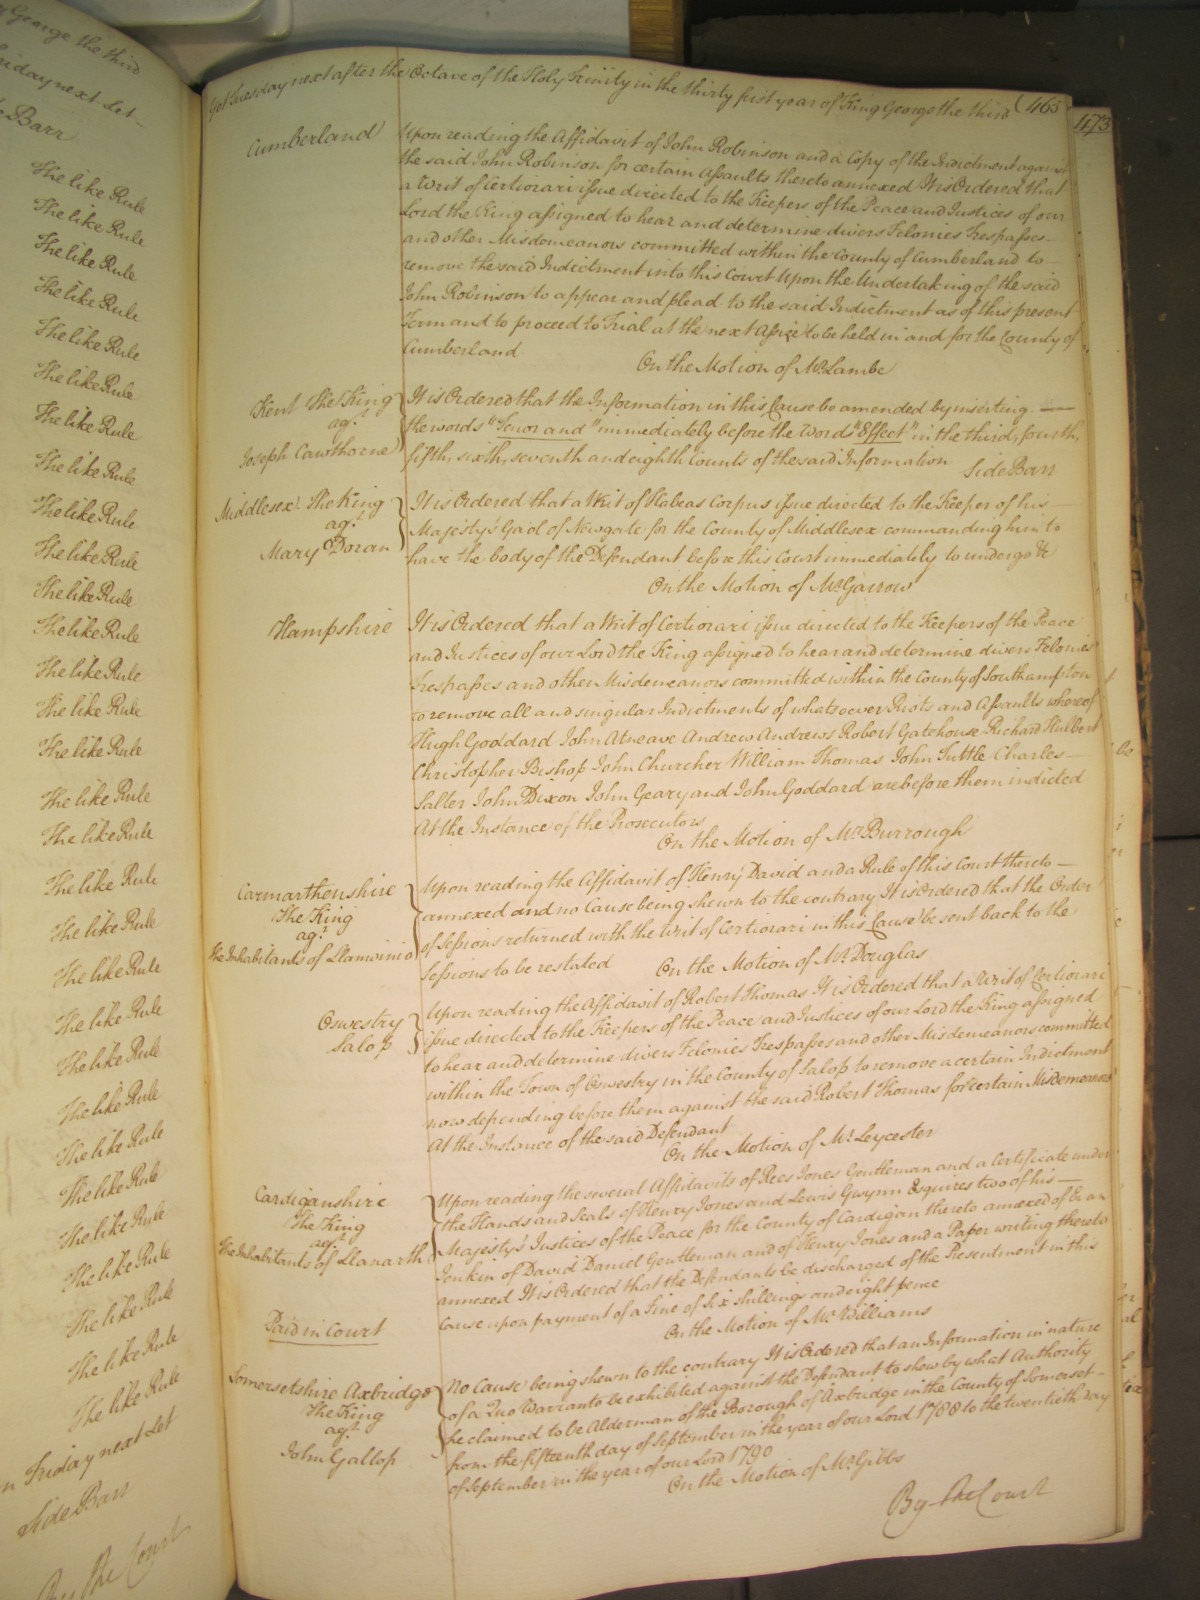 George the third
Friday next Let
Barr
The like Rule
The like Rule
The like Rule
The like Rule
The like Rule
The like Rule
The like Rule
The like Rule
The like Rule
The like Rule
The like Rule
The like Rule
The like Rule
The like Rule
The like Rule
The like Rule
The like Rule
The like Rule
The like Rule
The like Rule
The like Rule
The like Rule
The like Rule
The like Rule
The like Rule
The like Rule
The like Rule
The like Rule
The like Rule
The like Rule
Friday next Let
Side Barr
By the Court
Yet Tuesday next after the Octave of the Holy Trinity in the thirty first year of King George the third (465
473
Cumberland
Upon reading the Affidavit of John Robinson and a Copy of the Indictment against
the said John Robinson for certain Assaults thereto annexed It is Ordered that
a Writ of Certiorari issue directed to the Keepers of the Peace and Justices of our
Lord the King assigned to hear and determine divers Felonies Trespasses
and other Misdemeanors committed within the County of Cumberland to
remove the said Indictment into this Court Upon the Undertaking of the said
John Robinson to appear and plead to the said Indictment as of this present
Term and to proceed to Trial at the next Assize to be held in and for the County of
Cumberland
On the Motion of Mr. Lambe
Kent The King
agt.
Joseph Cawthorne
It is Ordered that the Information in this Cause be amended by inserting
the words "Tenor and" immediately before the Words "Effect" in the third, fourth,
fifth, sixth, seventh and eighth Counts of the said Information Side Barr
Middlesex. The King
agt.
Mary Doran
It is Ordered that a Writ of Habeas Corpus issue directed to the Keeper of his
Majesty's Gaol of Newgate for the County of Middlesex commanding him to
have the body of the Defendant before this Court immediately to undergo &c
On the Motion of Mr. Garrow
Hampshire
It is Ordered that a Writ of Certiorari issue directed to the Keepers of the Peace
and Justices of our Lord the King assigned to hear and determine divers Felonies
Trespasses and other Misdemeanors committed within the County of Southampton
to remove all and singular Indictments of whatsoever Riots and Assaults whereof
Hugh Goddard John Atneave Andrew Andrews Robert Gatehouse Richard Hulbert
Christopher Bishop John Churcher William Thomas John Tuttle Charles
Salter John Dixon John Geary and John Goddard are before them indicted
At the Instance of the Prosecutors
On the Motion of Mr. Burrough
Carmarthenshire
The King
agt.
The Inhabitants of Llanwinio
Upon reading the Affidavit of Henry David and a Rule of this Court thereto
annexed and no Cause being shewn to the contrary It is Ordered that the Order
of Sessions returned with the Writ of Certiorari in this Cause be sent back to the
Sessions to be restated On the Motion of Mr. Douglas
Oswestry
Salop
Upon reading the Affidavit of Robert Thomas It is Ordered that a Writ of Certiorari
issue directed to the Keepers of the Peace and Justices of our Lord the King assigned
to hear and determine divers Felonies Trespasses and other Misdemeanors committed
within the Town of Oswestry in the County of Salop to remove a certain Indictment
now depending before them against the said Robert Thomas for certain Misdemeanors
At the Instance of the said Defendant
On the Motion of Mr. Leycester
Cardiganshire
The King
agt.
The Inhabitants of Llanarth
Upon reading the several Affidavits of Rees Jones Gentleman and a Certificate under
the Hands and Seals of Henry Jones and Lewis Gwynn Esquires two of his
Majesty's Justices of the Peace for the County of Cardigan thereto annexed of Evan
Jenkin of David Daniel Gentleman and of Henry Jones and a Paper writing thereto
annexed It is Ordered that the Defendants be discharged of the Presentment in this
Cause upon payment of a Fine of Six shillings and eight pence
On the Motion of Mr. Williams
Paid in Court
Somersetshire Axbridge
The King
agt.
John Gallop
No Cause being shewn to the contrary It is Ordered that an Information in nature
of a Quo Warranto be exhibited against the Defendant to shew by what Authority
he claimed to be Alderman of the Borough of Axbridge in the County of Somerset
from the fifteenth day of September in the year of our Lord 1788 to the twentieth day
of September in the year of our Lord 1790
On the Motion of Mr. Gibbs
By the Court